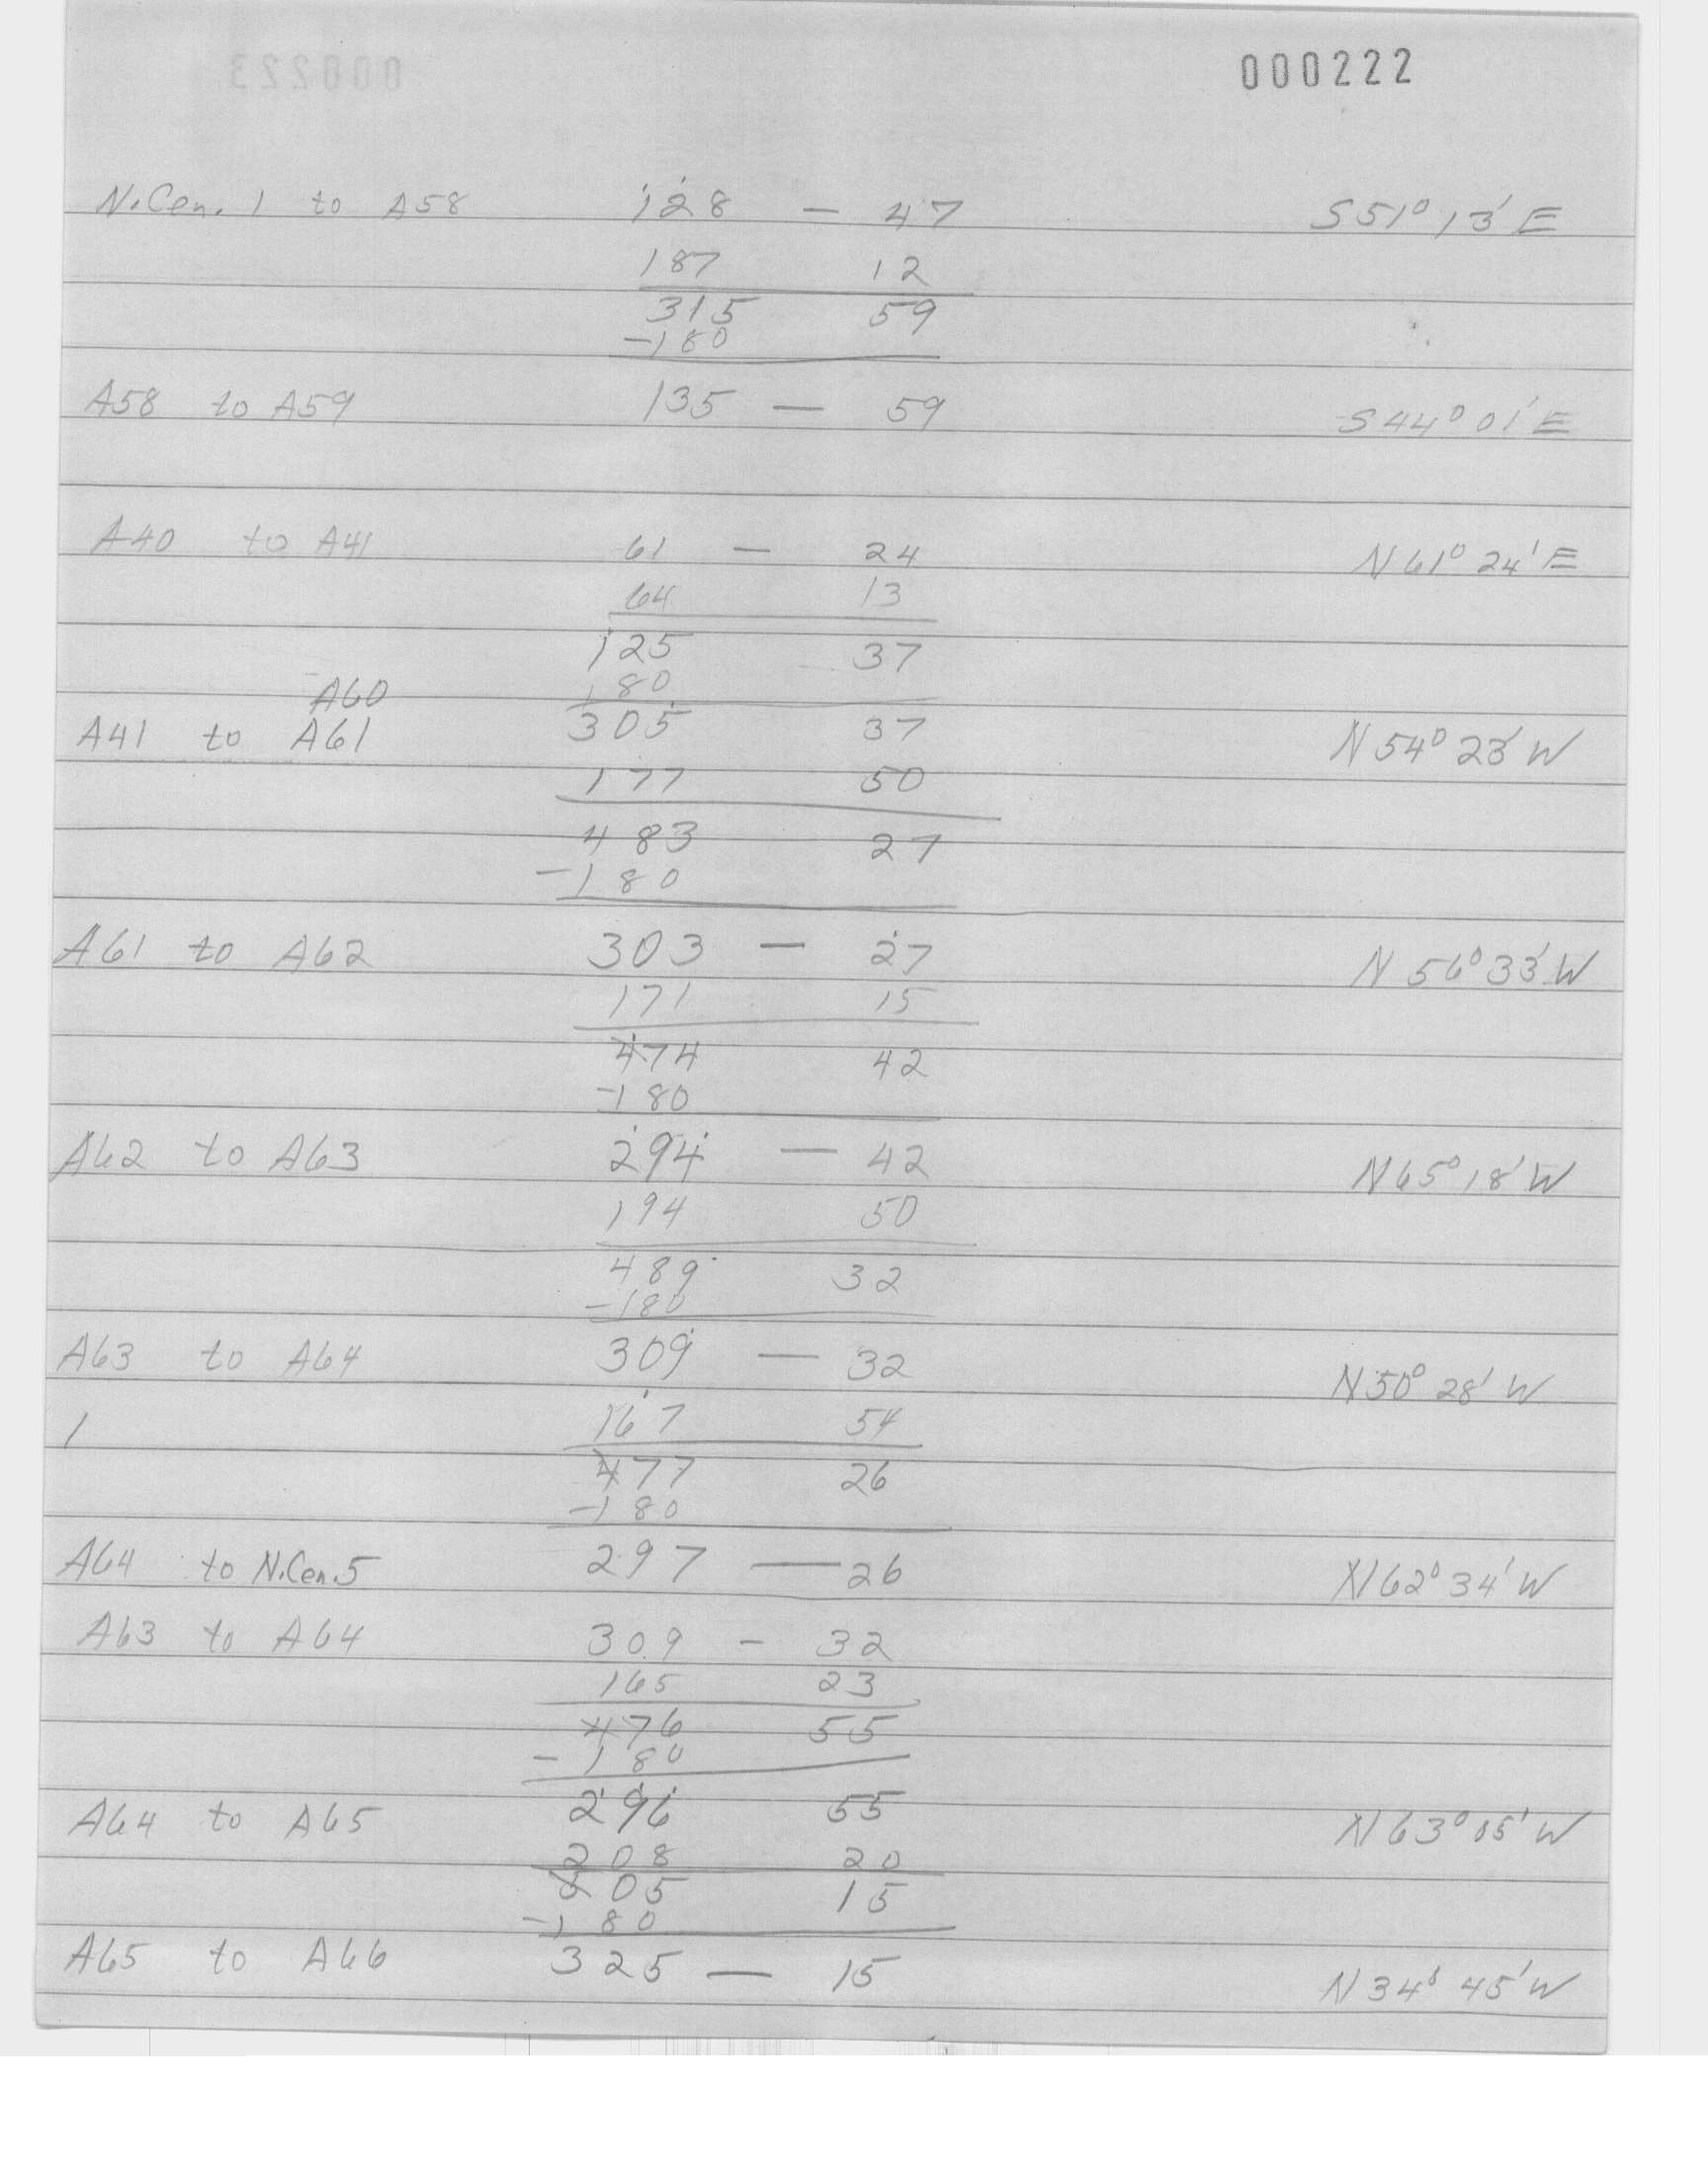 000222
N.Cen. 1 to A58 128 — 47 S51° 13' E
187 12
315 59
-180
A58 to A59 135 — 59 S44° 01' E
A40 to A41 61 — 24 N61° 24' E
64 13
125 37
A60 180
A41 to A61 305 37 N54° 23' W
177 50
483 27
-180
A61 to A62 303 — 27 N56° 33' W
171 15
474 42
-180
A62 to A63 294 — 42 N65° 18' W
194 50
489 32
-180
A63 to A64 309 — 32 N50° 28' W
/ 167 54
477 26
-180
A64 to N.Cen.5 297 — 26 N62° 34' W
A63 to A64 309 - 32
165 23
476 55
-180
A64 to A65 296 55 N63° 05' W
208 20
505 15
-180
A65 to A66 325 — 15 N34° 45' W